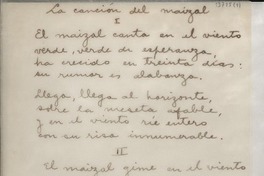 La canción del maizal
I
El maizal canta en el viento
verde, verde de esperanza,
ha crecido en treinta días:
su rumor es alabanza.
Llega, llega al horizonte,
sobre la meseta afable,
y en el viento ríe entero
con su risa innumerable.
II
El maizal gime en el viento